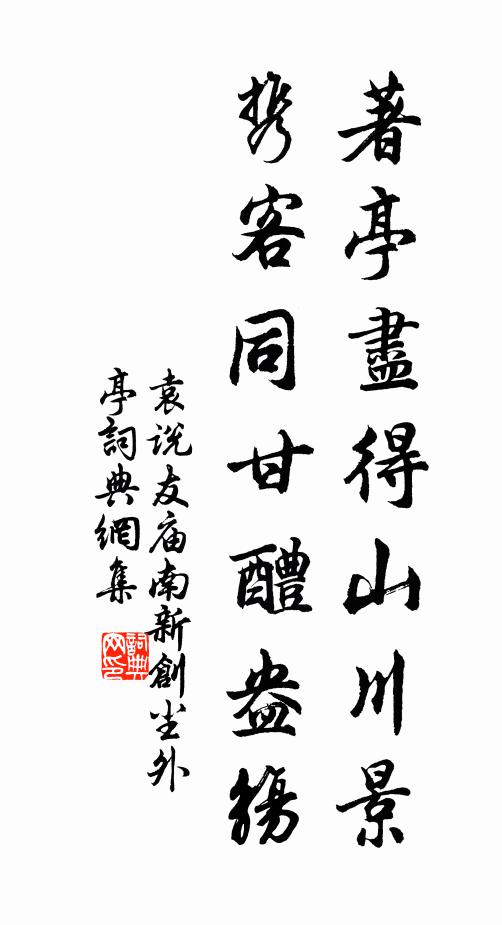 著亭盡得山川景
携客同甘醴盎觴
袁說友庙南新創尘外
亭詞典網集
詞典
网印